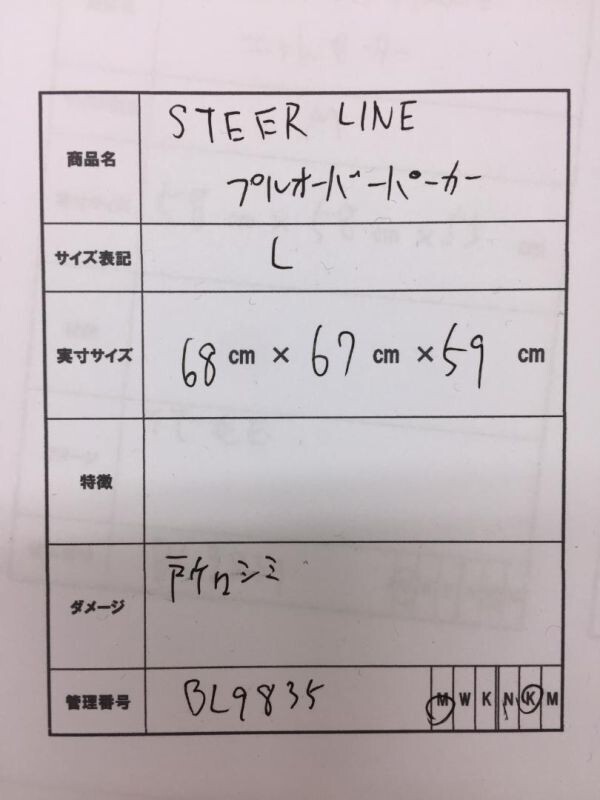 商品名
STEER LINE
プルオーバーパーカー
サイズ表記
L
実寸サイズ
68 cm × 67 cm × 59 cm
特徴
ダメージ
シミ
管理番号
BL9835
M W K N K M